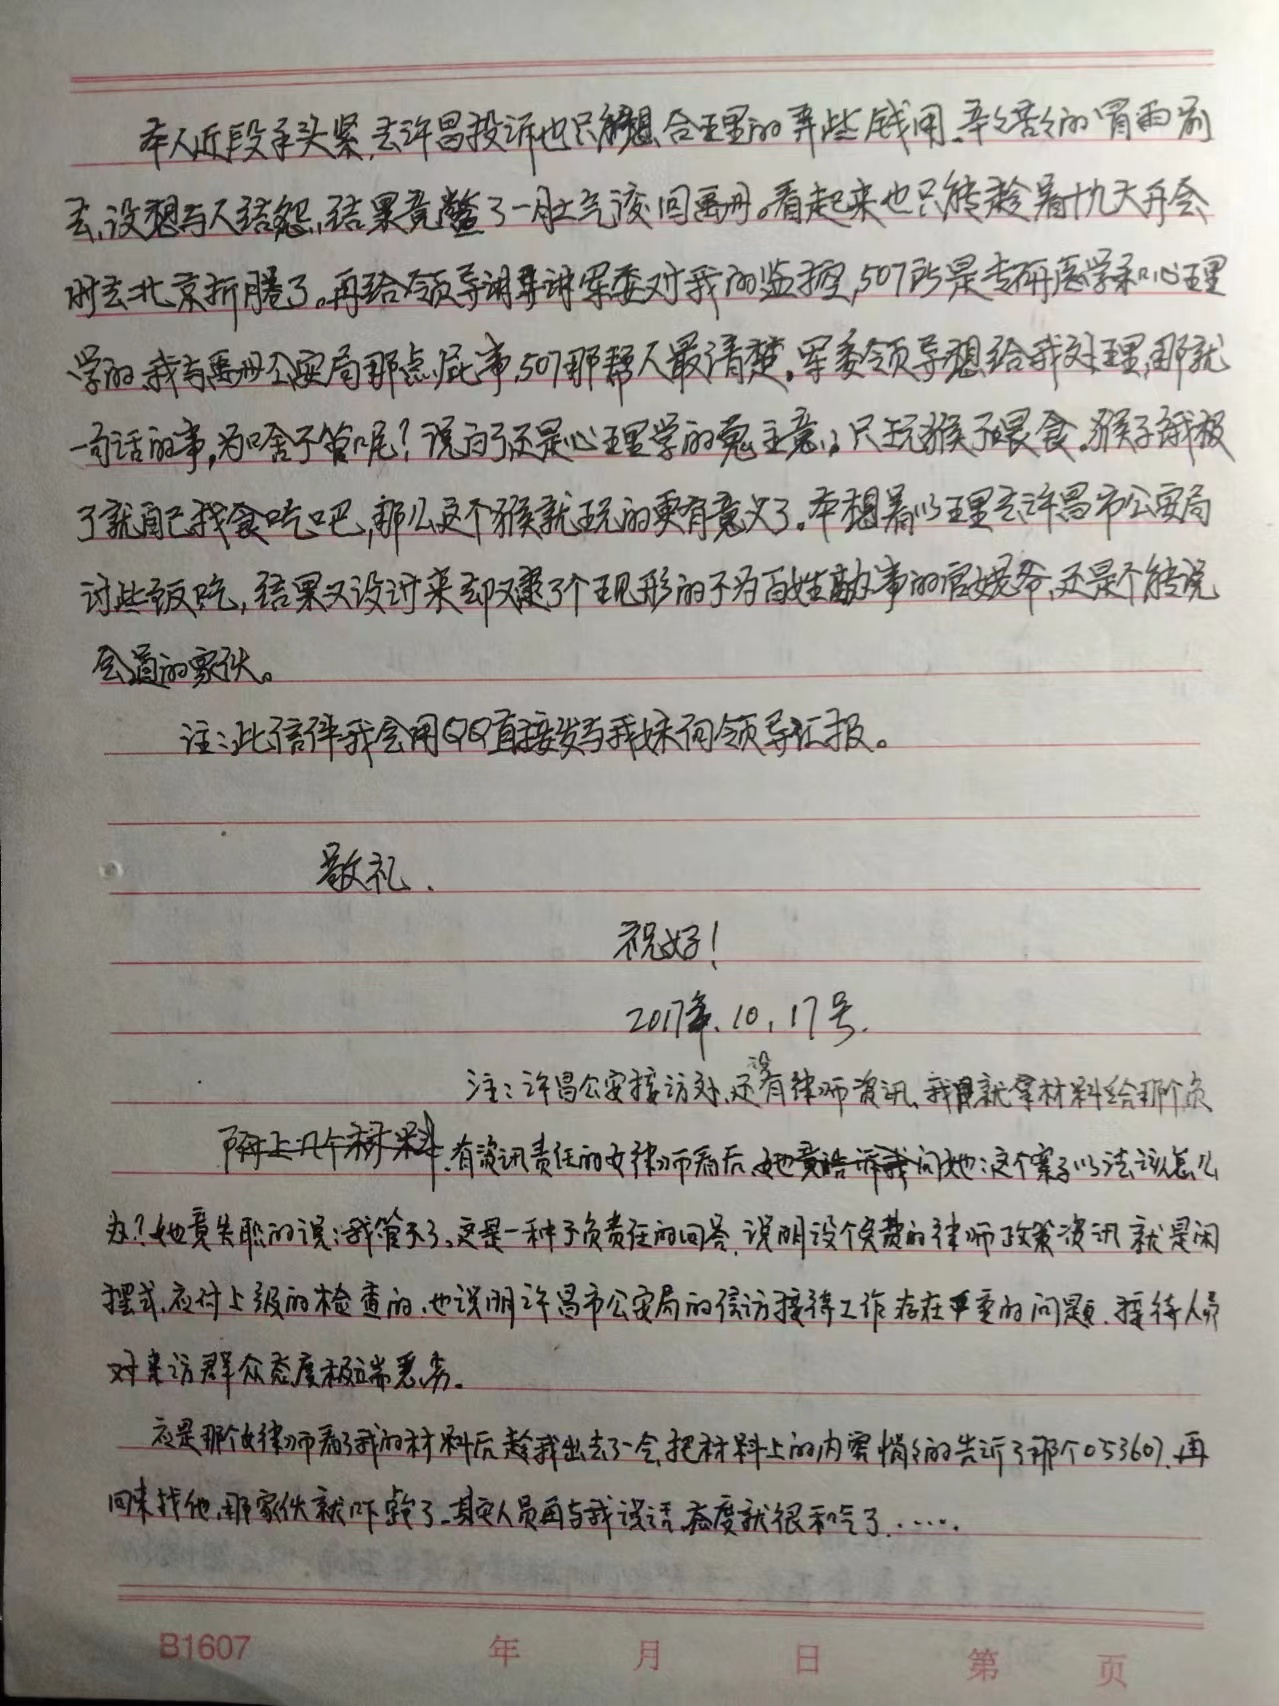 本人近段手头紧,去许昌投诉也只能想合理的弄些钱用,辛辛苦苦的冒雨前
去,没想与人结怨,结果竟憋了一肚气该回禹州。看起来也只能趁着十九大再会
时去北京折腾了。再给领导讲讲军委对我的监控,507所是专研医学和心理
学的,我与禹州公安局那点屁事,507那帮人最清楚。军委领导想给我处理,那就
一句话的事,为啥不管呢?说白了还是心理学的鬼主意。只玩猴不喂食。猴子饿极
了就自己找食吃吧,那么这个猴就玩的更有意义了。本想着以理去许昌市公安局
讨些饭吃,结果又没讨来却又逮了个现形的不为百姓做事的官娱爷,还是个能说
会道的家伙。
注:此信件我会用QQ直接发与我妹向领导汇报。
敬礼.
祝好!
2017年.10,17号.
注:许昌公安接访处,还没有律师资讯,我就拿材料给那个负
附上几个材料,有资讯责任的女律师看后,她竟告诉我问她:这个案子以法该怎么
办?她竟失职的说:我管不了。这是一种不负责任的回答,说明设个免费的律师政策资讯就是闲
摆式,应付上级的检查的,也说明许昌市公安局的信访接待工作存在严重的问题,接待人员
对来访群众态度极端恶劣。
应是那个女律师看了我的材料后趁我出去了一会把材料上的内容悄悄的告诉了那个053607,再
回来找他,那家伙就吓跑了。其它人员再与我说话,态度就很和气了......
B1607 年 月 日 第 页